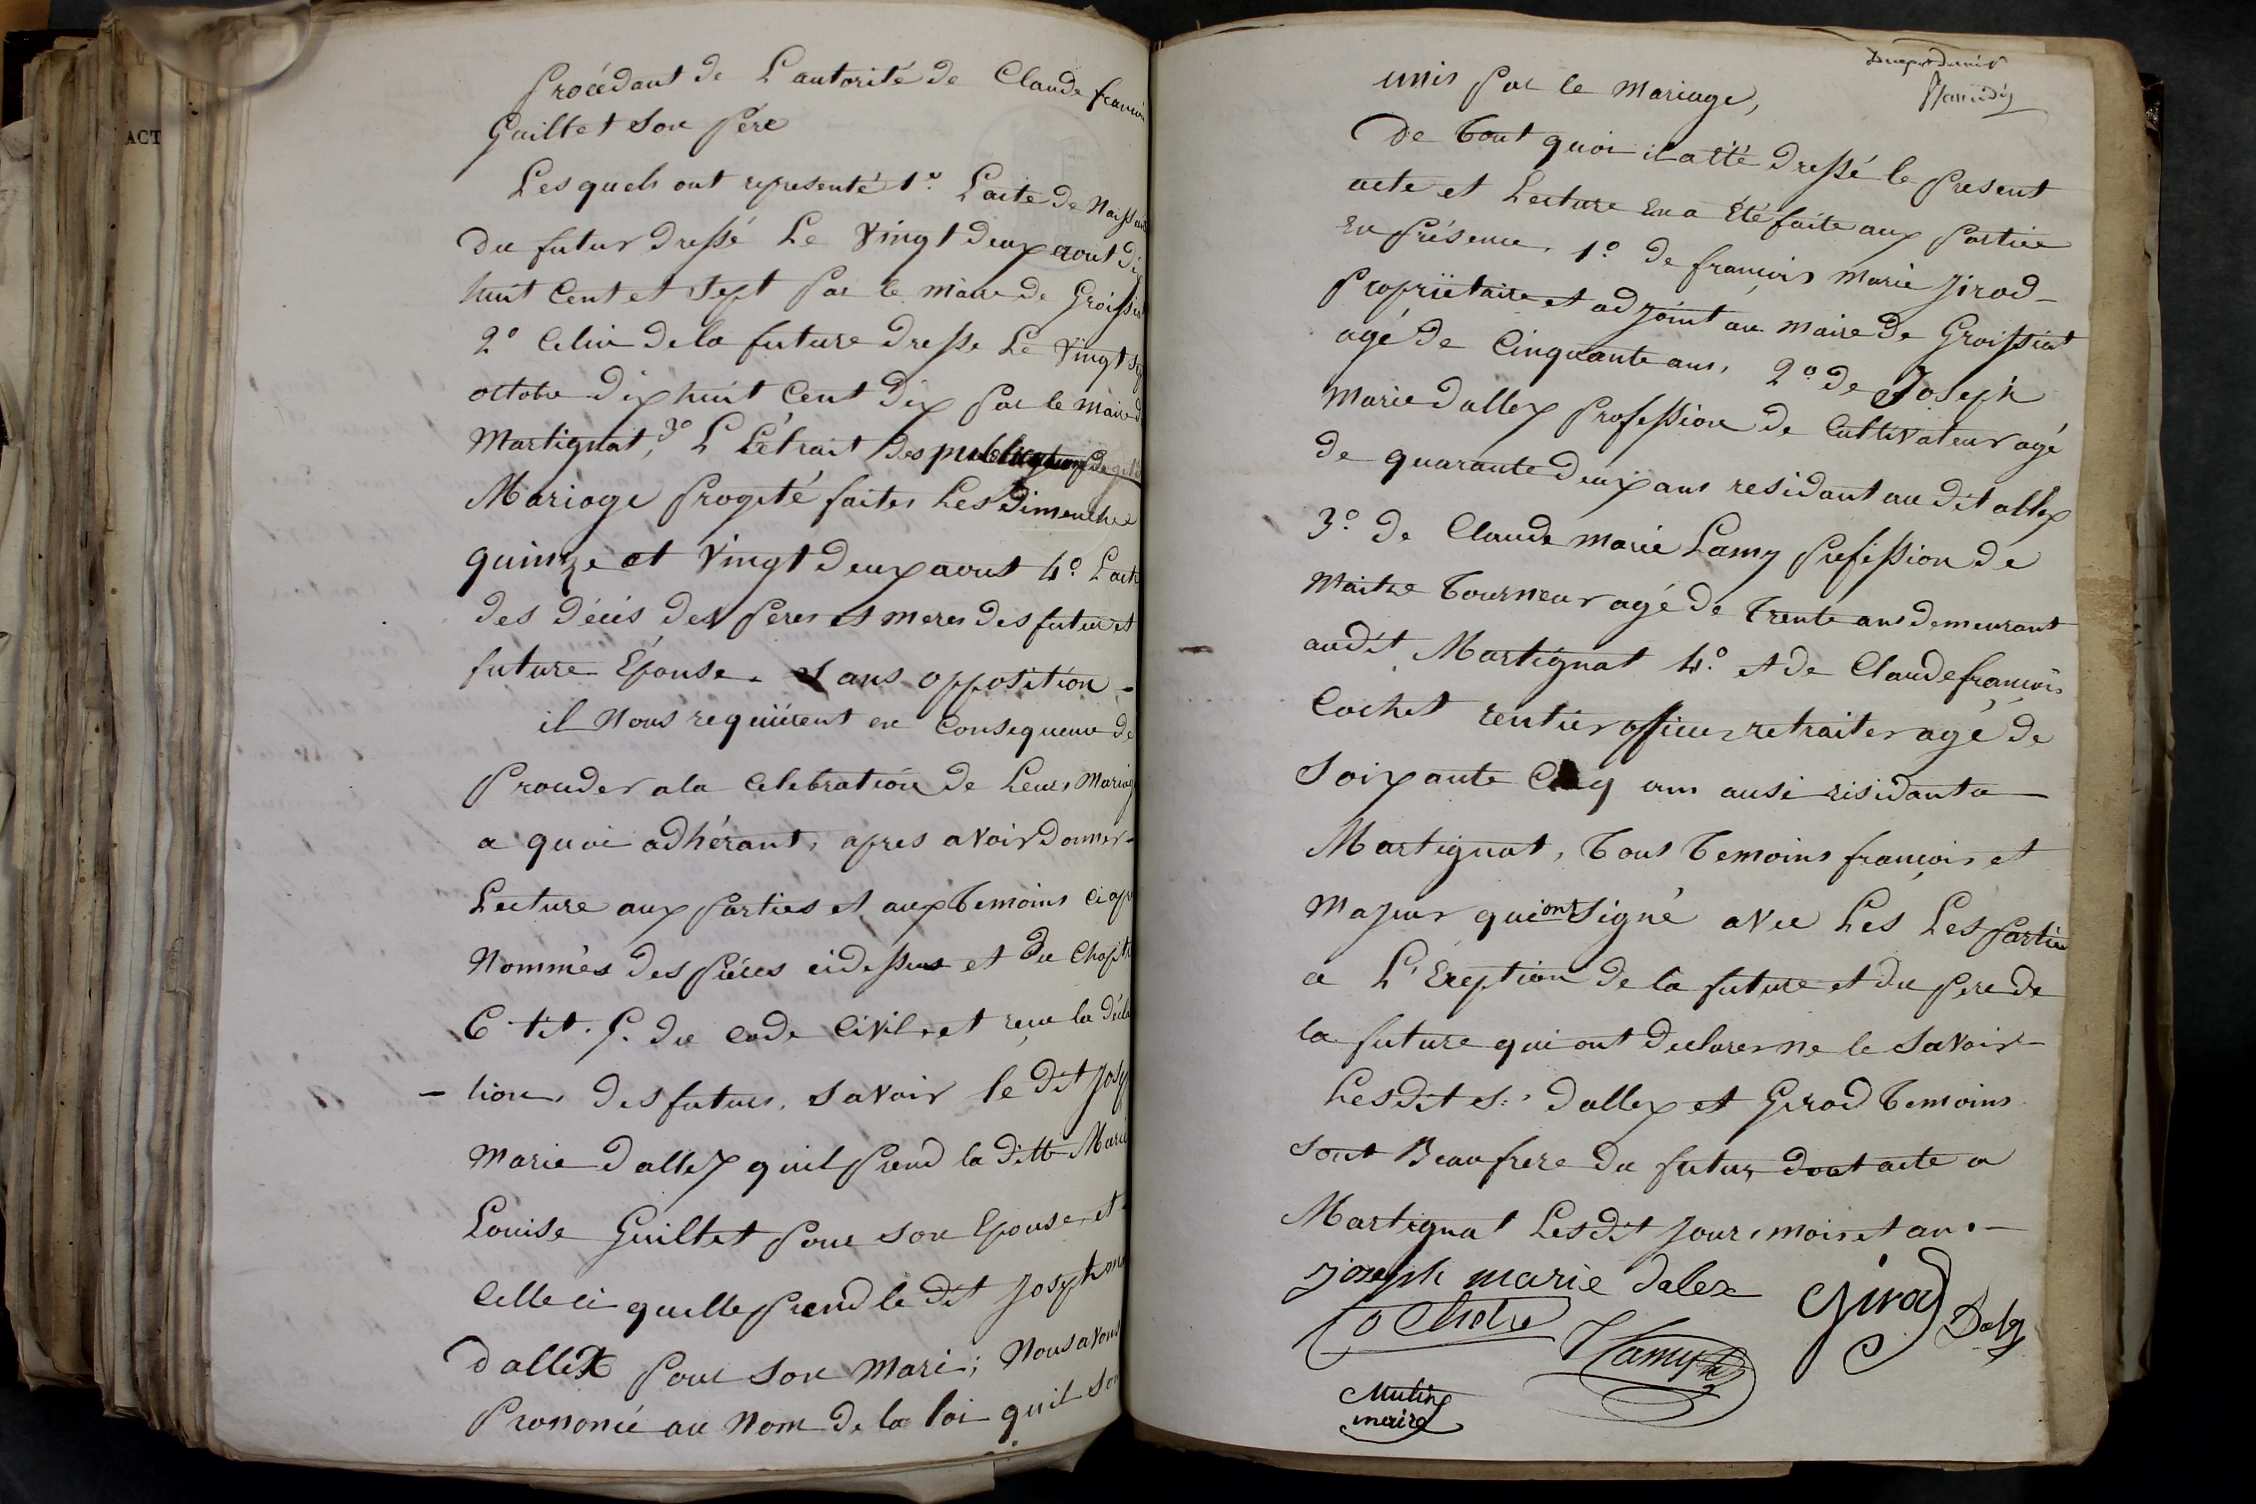 ACT
Procédant de L'autorité de Claude françois
Guillet Son Père
Les quels ont representé 1.° L'acte de Naissan
du futur dressé Le Vingt deux aout di
huit Cent et Sept par le maire de Groissia
2° Celui de la future dresse Le Vingt
octobre dix huit Cent dix par le maire d
Martignat, 3° L L'étrait des publication de
Mariage progeté faites Les Dimenche
quinze et Vingt deux aout 4.° L'acte
des décès des Peres et meres des futur et
future Épouse. Sans opposition -
il Nous requièrent en Consequence de
Proceder a la Célébration de Leurs Mariag
a quoi adhérant, apres avoir donner -
Lecture aux parties et aux temoins Ci ap
Nommés des pièces cidessus et du Chapit
6 tit. 5. du Code Civil, et reçu la décla
- tion, des futurs. Savoir le dit Josep
Marie dallex quil prend la ditte Marie
Louise Guillet pour son Epouse, et
Celle ci quelle prend le dit Joseph ma
dallex pour son Mari; Nous avons
Prononcé au Nom de la loi quil so
unis par le Mariage,
De tout quoi il a été dressé le present
acte et Lecture en a été faite aux parties
en présence, 1.° de françois Marie Jirod -
Propriëtaire et adjoint au maire de Groissiat
agé de Cinquante ans, 2.° de Joseph
Marie dallex profession de Cultivateur agé
de quarante deux ans residant au dit allex
3.° de Claude Marie Lamy profession de
Maitre Tourneur agé de Trente ans demeurant
audit Martignat 4.° et de Claude françois
Cochet rentier officier retraiter agé de
Soixante Cinq ans ausi residant a
Martignat, Tous Temoins francois et
Majeur qui ont signé avec Les Les partie
a L'Exeption de la future et du pere de
la future qui ont declarer ne le Savoir -
Lesdit S.rs dallex et Girod temoins
sont Beaufrere du futur, dont acte a
Martignat Lesdit jour, mois et an. -
joseph marie dalex
Girod
Dalex
Cochet
Lamy
Mutin
maire